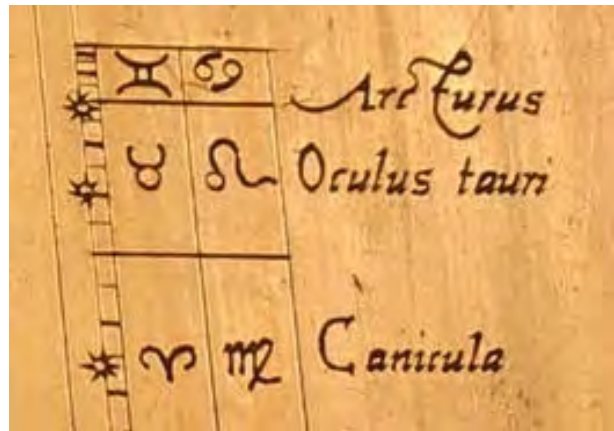 ♊ ♋ Arcturus
♉ ♌ Oculus tauri
♈ ♍ Canicula